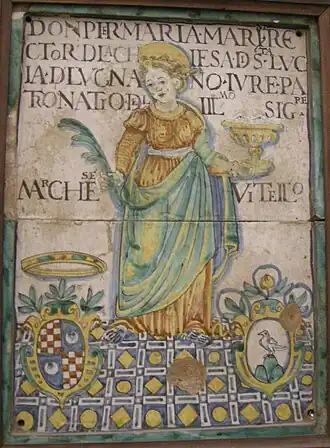 DON PIER MARIA MARI RE
CTOR D LA CHIESA D S LVC
IA D LVGNANO IVRE PA
TRONATO D IIL.MO SIG.RE
MARCHESE VITELLO